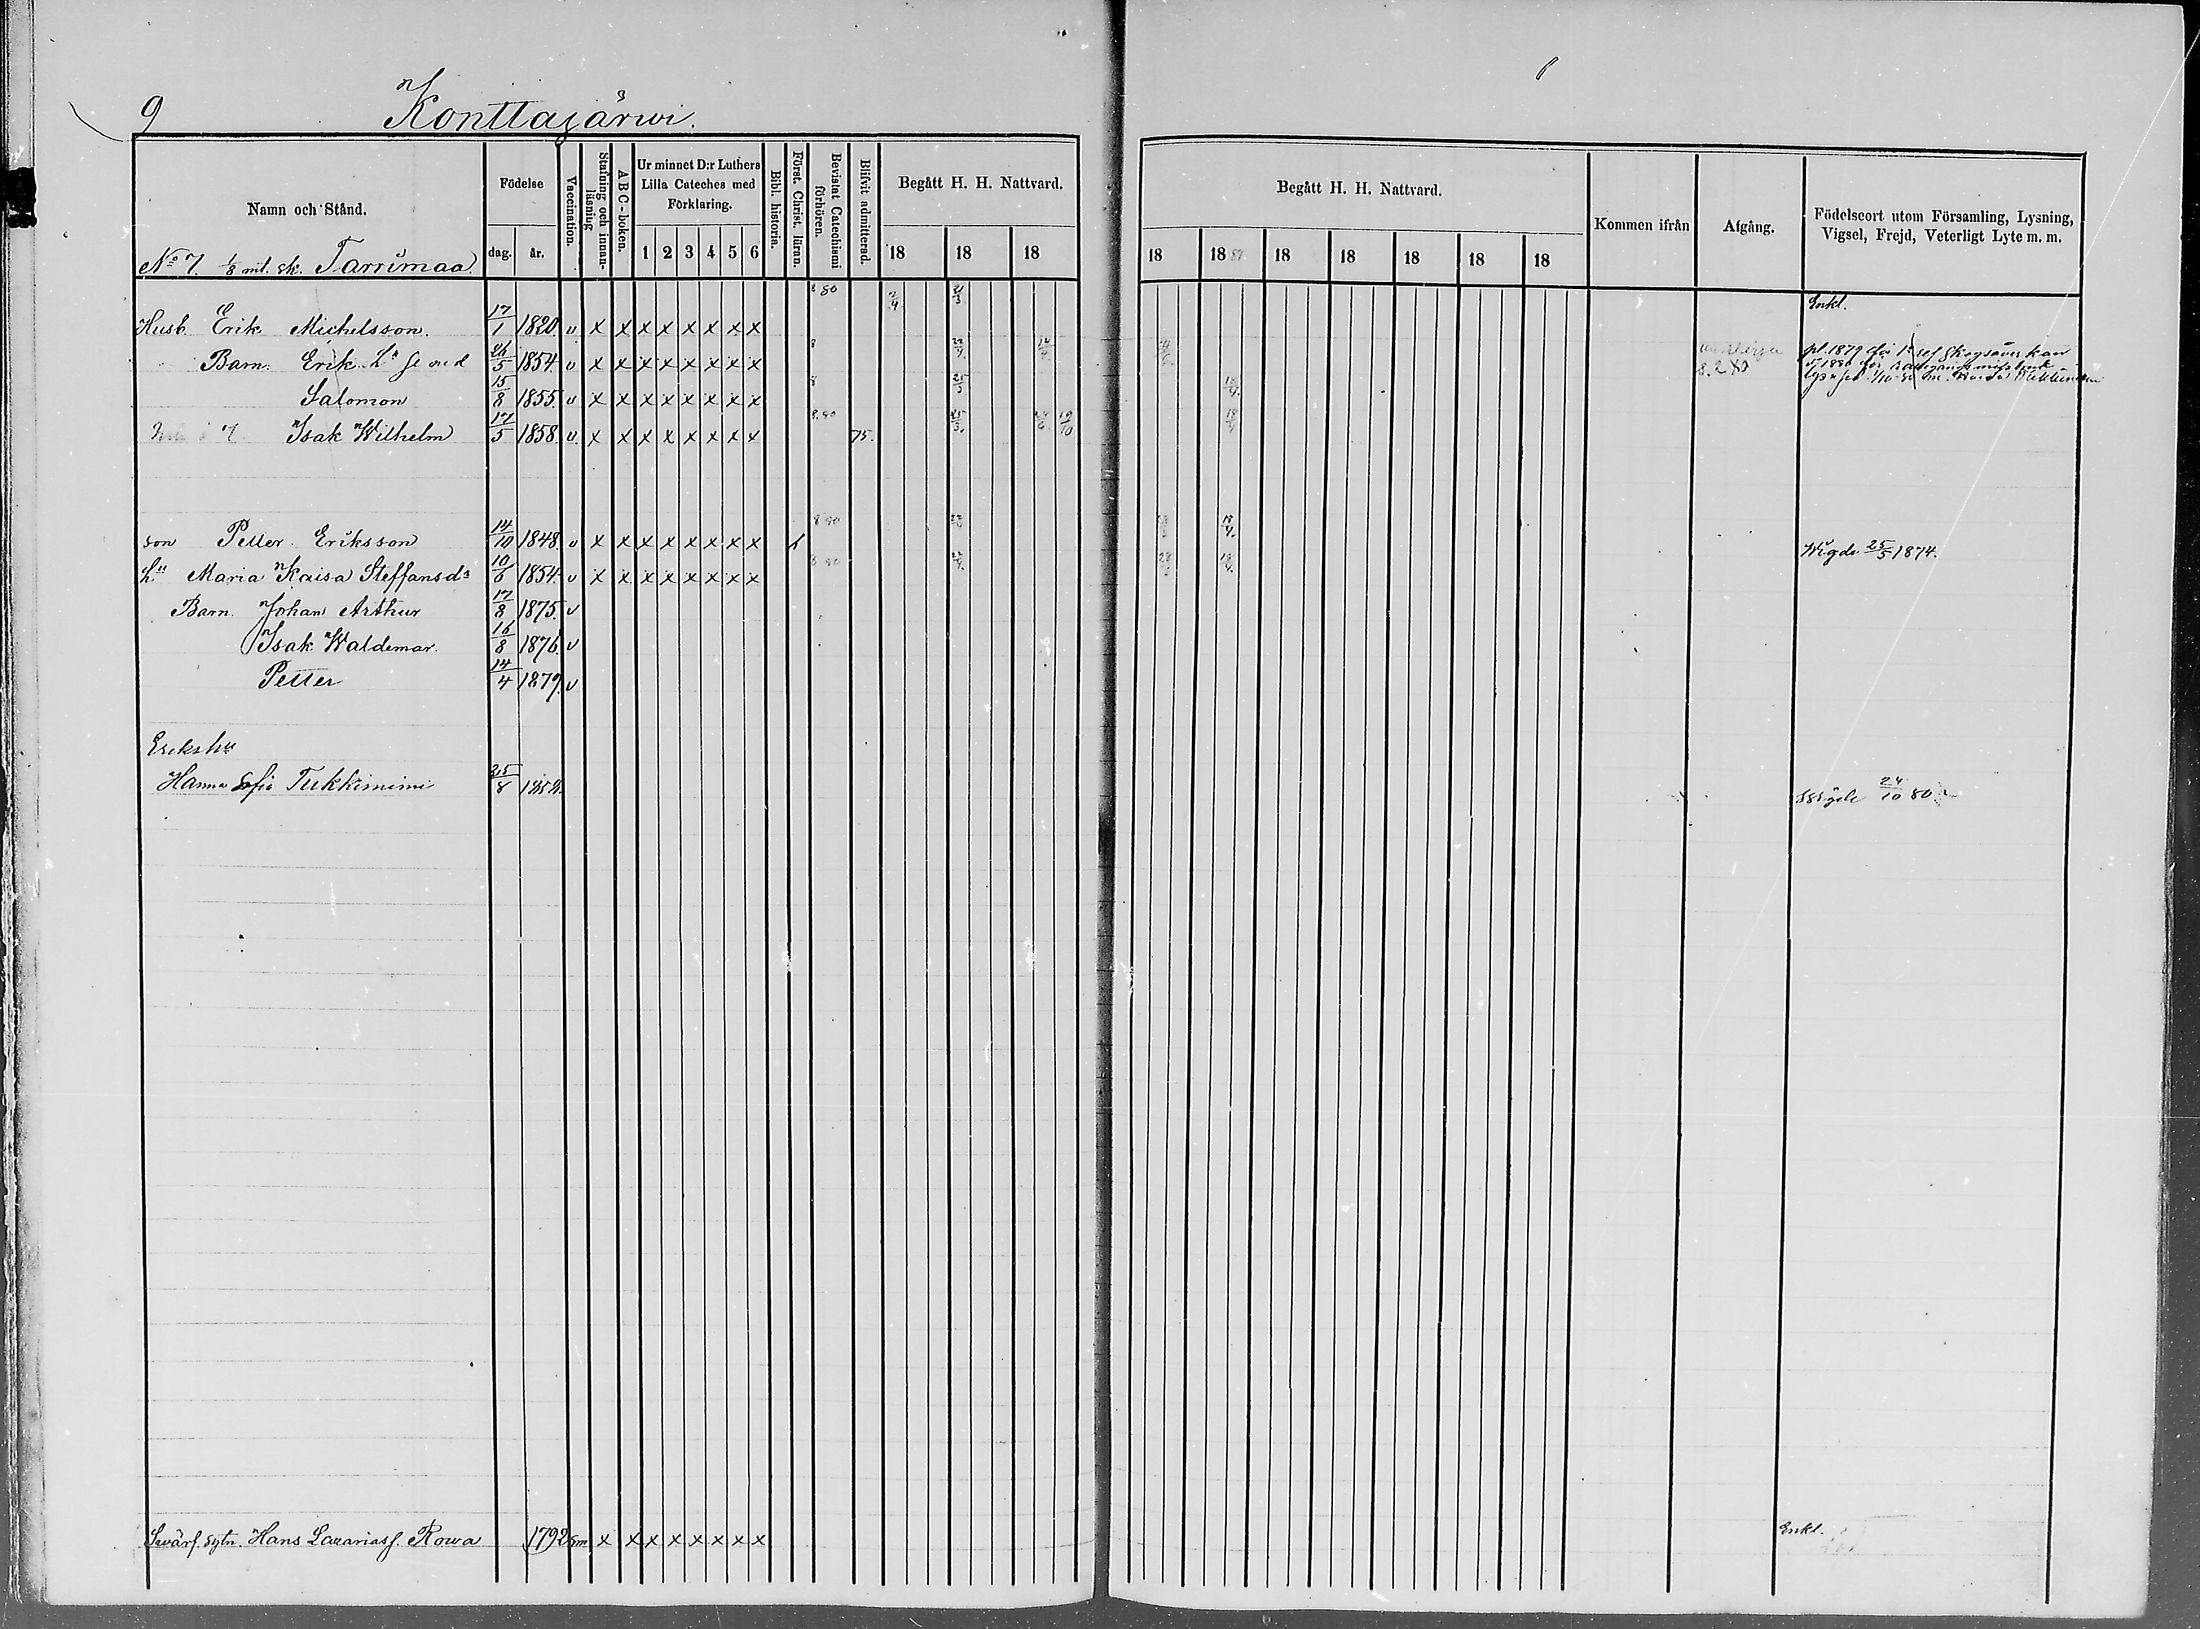 9 Konttajärwi.
Namn och Stånd. Födelse dag. år. Vaccination. Stafning och innanläsning ABC-boken. Ur minnet D:r Luthers Lilla Cateches med Förklaring. 1 2 3 4 5 6 Bibl. historia. Först. Christ. läran. Bevistat Catechismi förhören. Blifvit admitterad. Begått H. H. Nattvard. 18 18 18
Begått H. H. Nattvard. 18 18 18 18 18 18 18 Kommen ifrån Afgång. Födelseort utom Församling, Lysning, Vigsel, Frejd, Veterligt Lyte m. m.
No 7. 1/8 mt. sk. Tarrimaa
Husb. Erik Michelsson. 17/1 1820 v x x x x x x x x 80 Enkl.
Barn. Erik 26/5 1854 v x x x x x x x x 8 pl. 1879 för
Salomon 15/8 1855 v x x x x x x x x 8
7 Isak Wilhelm 17/5 1858 v x x x x x x x x 8 80 75.
son Petter Eriksson 14/10 1848 v x x x x x x x x 8 80
h:u Maria Kaisa Steffansd:r 10/6 1854 v x x x x x x x x 8 80 Wigde 25/5 1874.
Barn. Johan Arthur 17/8 1875 v
Isak Waldemar. 16/8 1876 v
Petter 14/4 1879 v
Eriks hu
Hanna Sofia Tukkimimi 25/8 Wigde 24/10 80
Swärf. sytn. Hans Lazariass. Rowa 1792 x x x x x x x x Enkl.